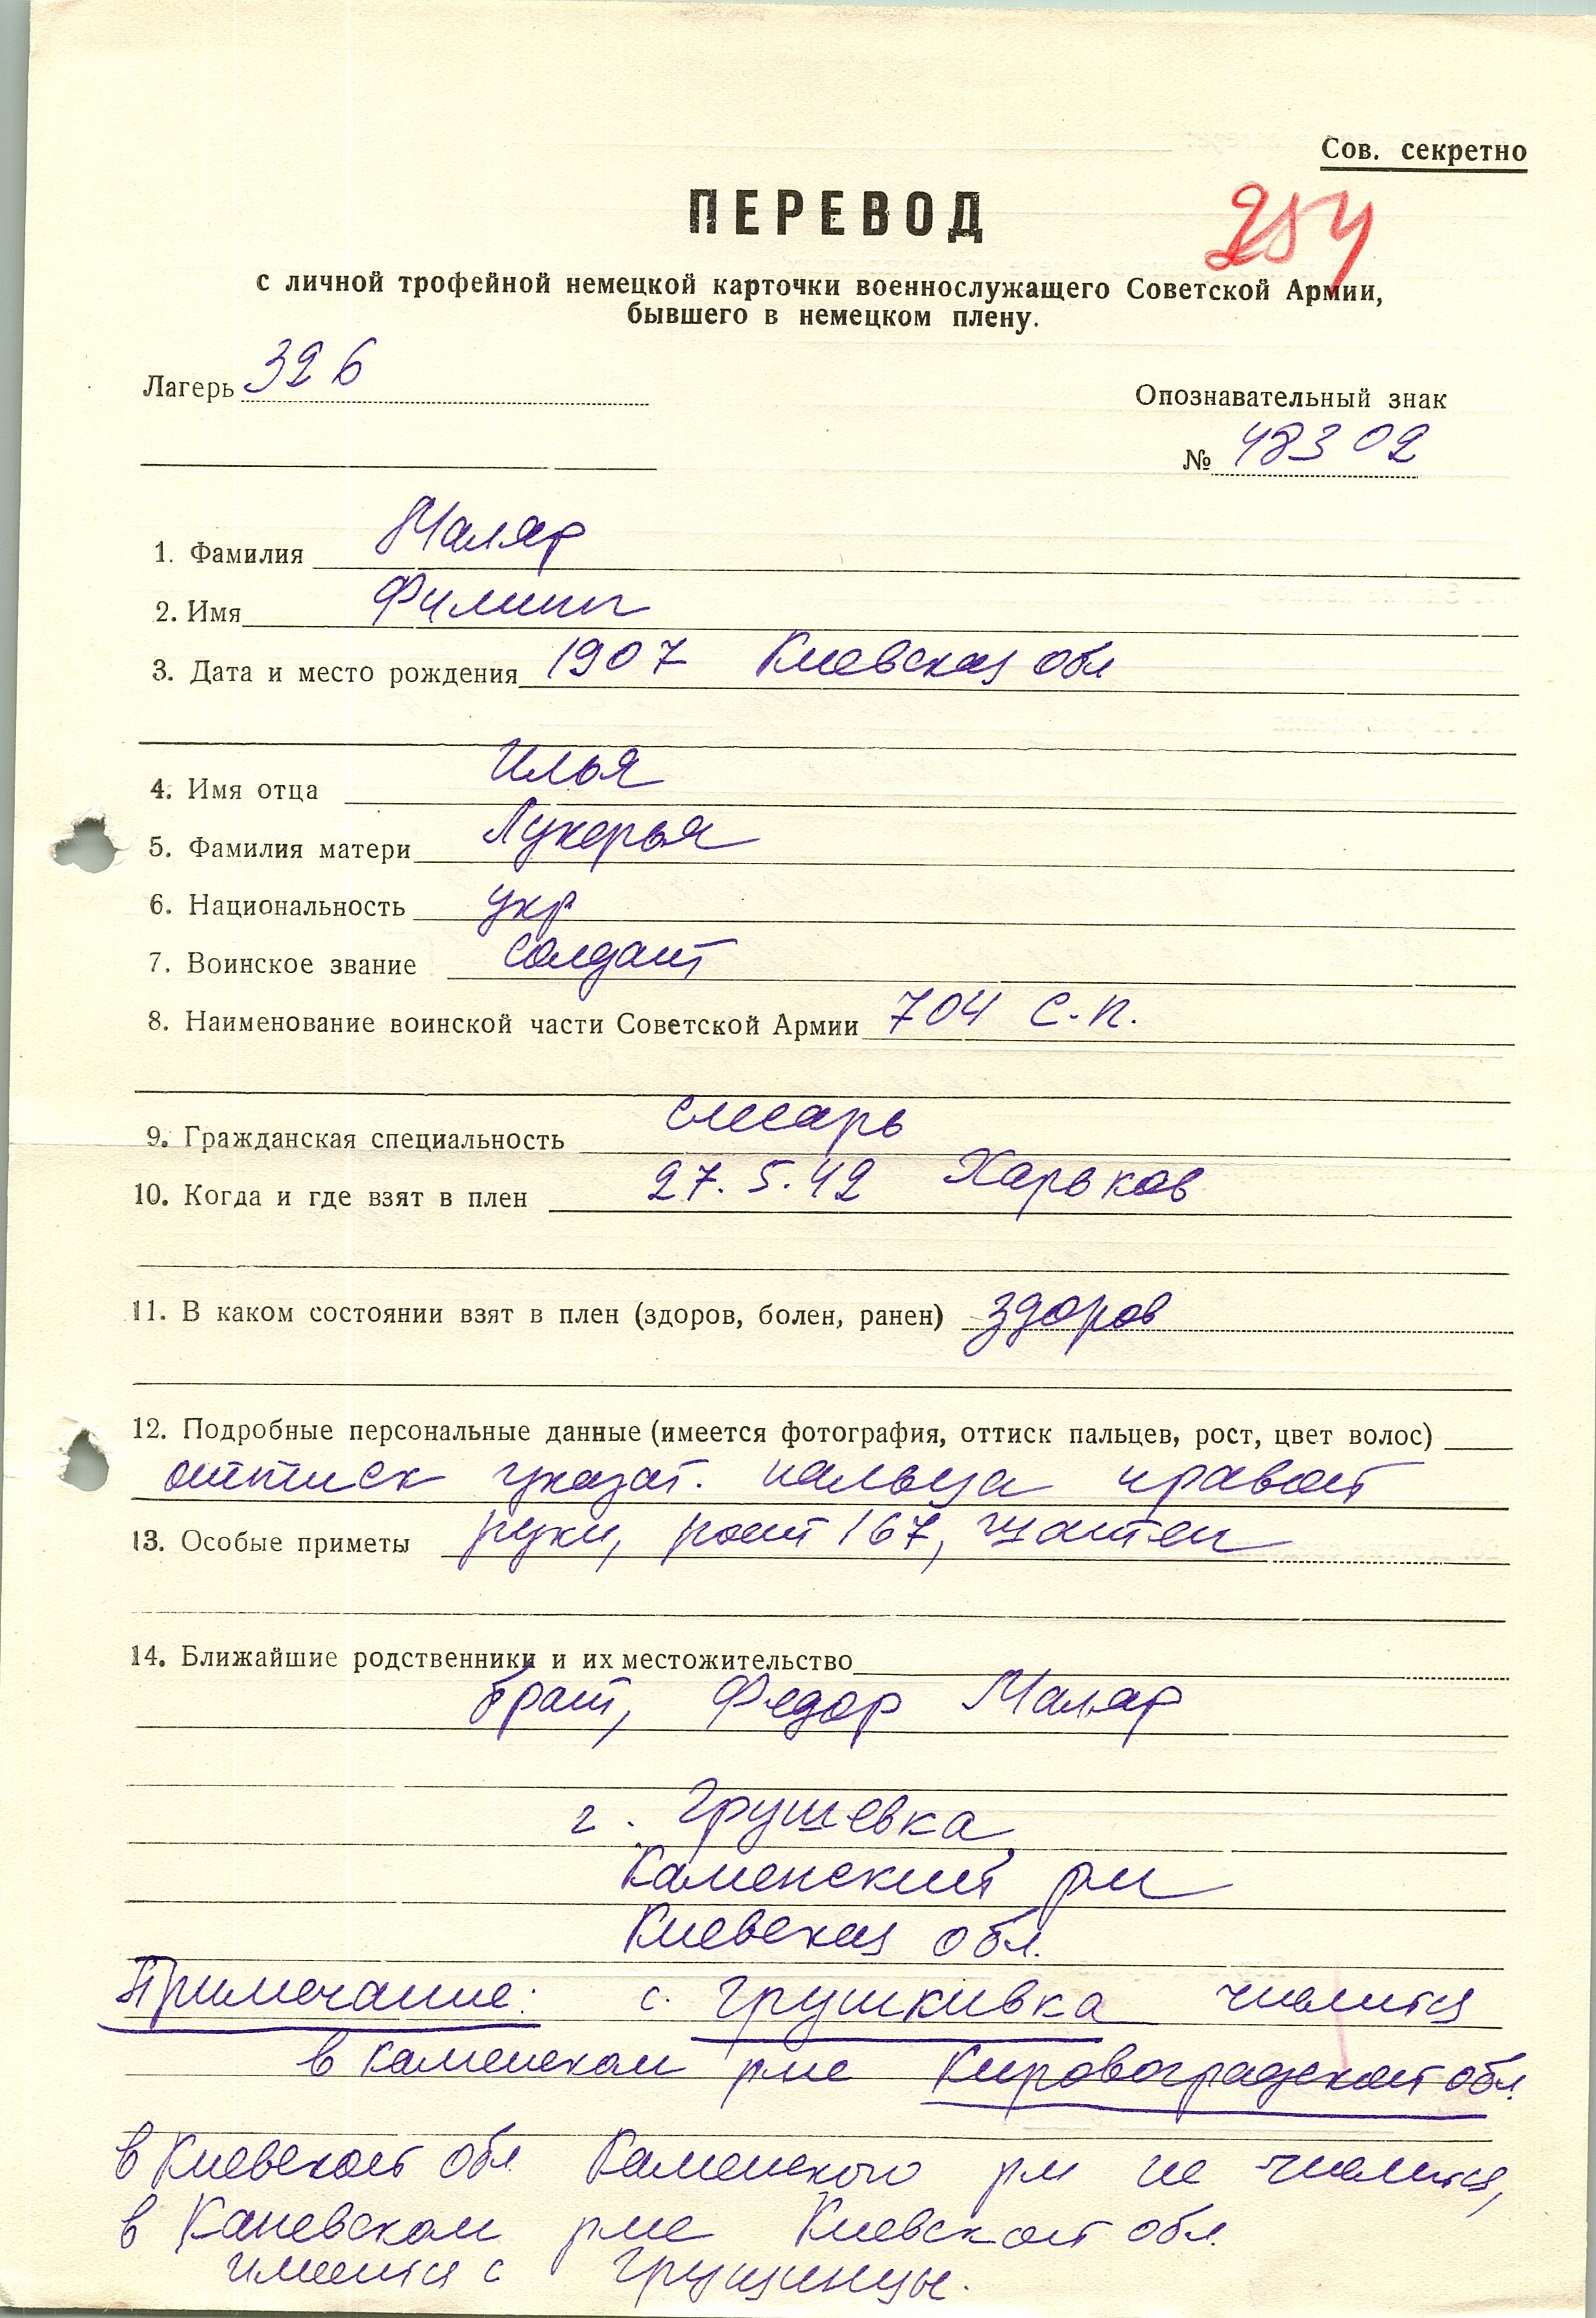 Сов. секретно
ПЕРЕВОД
254
с личной трофейной немецкой карточки военнослужащего Советской Армии,
бывшего в немецком плену.
Лагерь 326
Опознавательный знак
№ 48302
1. Фамилия Маляр
2. Имя Филипп
3. Дата и место рождения 1907 Киевская обл
4. Имя отца Илья
5. Фамилия матери Лукерья
6. Национальность укр
7. Воинское звание солдат
8. Наименование воинской части Советской Армии 704 с.п.
9. Гражданская специальность слесарь
10. Когда и где взят в плен 27.5.42 Харьков
11. В каком состоянии взят в плен (здоров, болен, ранен) здоров
12. Подробные персональные данные (имеется фотография, оттиск пальцев, рост, цвет волос)
оттиск указат. пальца правой
13. Особые приметы руки, рост 167, шатен
14. Ближайшие родственники и их местожительство
брат, Федор Маляр
г. Грушевка,
Каменский рн
Киевская обл.
Примечание: с. Грушкивка числится
в Каменском рне Кировоградской обл.
в Киевской обл Каменского рн не числится,
в Каневском рне Киевской обл.
имеется с Грушинцы.